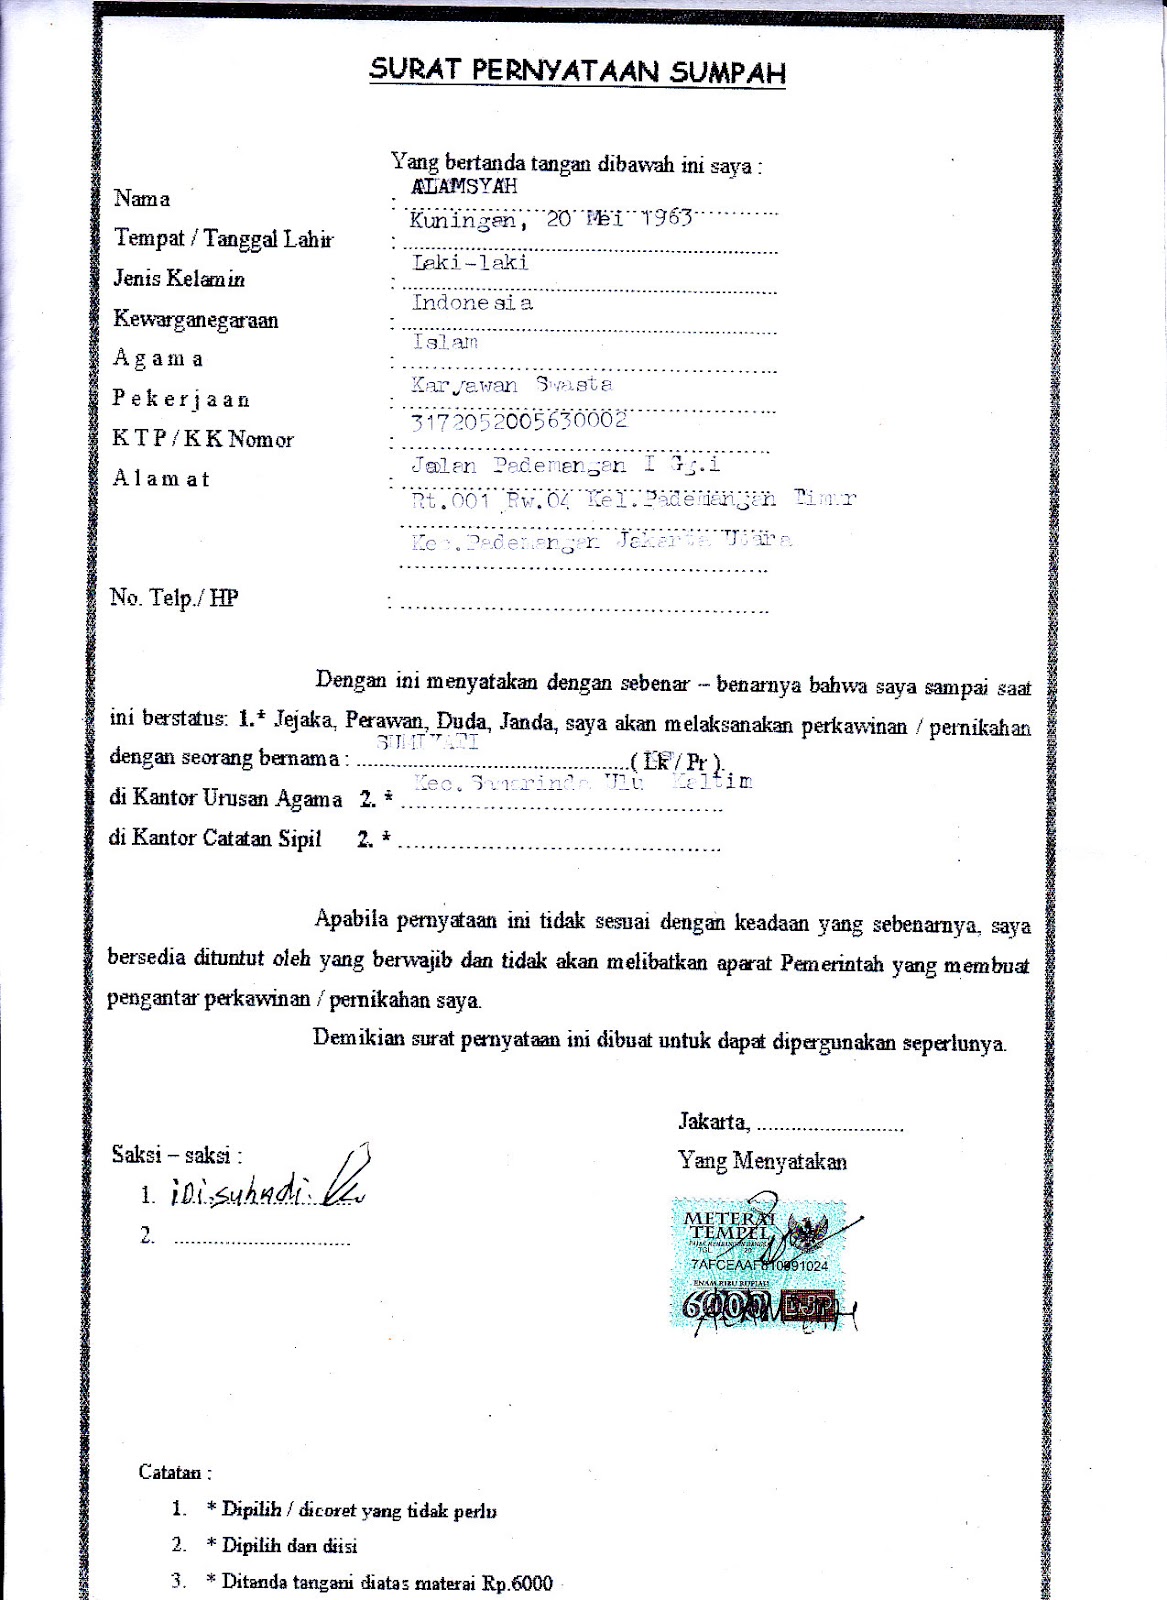 SURAT PERNYATAAN SUMPAH
Yang bertanda tangan dibawah ini saya :
Nama : ALAMSYAH
Tempat / Tanggal Lahir : Kuningan, 20 Mei 1963
Jenis Kelamin : Laki-laki
Kewarganegaraan : Indonesia
Agama : Islam
Pekerjaan : Karyawan Swasta
KTP / KK Nomor : 3172052005630002
Alamat : Jalan Pademangan I Gg.i
Rt.001 Rw.04 Kel.Pademangan Timur
Kec.Pademangan Jakarta Utara
No. Telp./ HP : ................................................
Dengan ini menyatakan dengan sebenar – benarnya bahwa saya sampai saat
ini berstatus: 1.* Jejaka, Perawan, Duda, Janda, saya akan melaksanakan perkawinan / pernikahan
dengan seorang bernama : SUMIYATI ( Lk / Pr ).
di Kantor Urusan Agama 2. * Kec.Samarinda Ulu Kaltim
di Kantor Catatan Sipil 2. * ................................................
Apabila pernyataan ini tidak sesuai dengan keadaan yang sebenarnya, saya
bersedia dituntut oleh yang berwajib dan tidak akan melibatkan aparat Pemerintah yang membuat
pengantar perkawinan / pernikahan saya.
Demikian surat pernyataan ini dibuat untuk dapat dipergunakan seperlunya.
Jakarta, ..........................
Saksi – saksi :
Yang Menyatakan
1. iDi.suhadi.
2. ................................
METERAI
TEMPEL
TGL 20
7AFCEAAF810991024
ENAM RIBU RUPIAH
6000 DJP
ALAMSYAH
Catatan :
1. * Dipilih / dicoret yang tidak perlu
2. * Dipilih dan diisi
3. * Ditanda tangani diatas materai Rp.6000